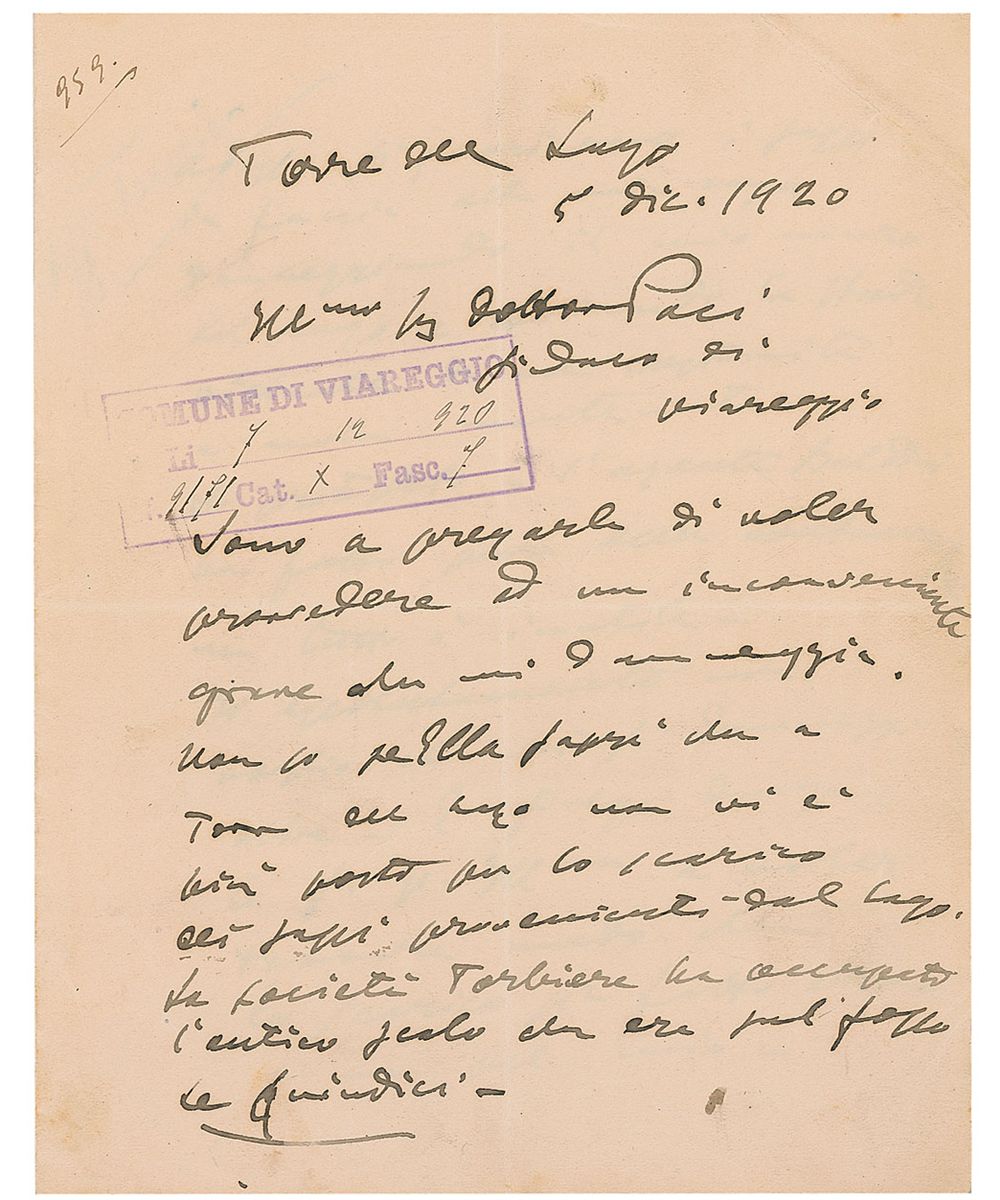 959.
Torre del Lago
5 dic. 1920
Ill.mo Sig Dottor Paci
Sindaco di
Viareggio
COMUNE DI VIAREGGIO
Li 7 12 920
9171 Cat. X Fasc. 7
Sono a pregarla di voler
provvedere ad un inconveniente
grave che mi danneggia.
Non so se Ella sappia che a
Torre del Lago non vi è
più posto per lo scarico
dei sassi provenienti dal Lago.
La Società Torbiere ha occupato
l'antico scalo che era sul fosso
Le Quindici -